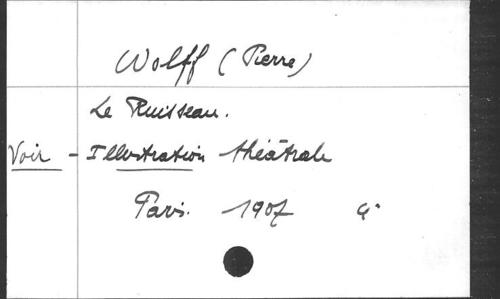 Wolff (Pierre)
Le Ruisseau.
Voir - Illustration théâtrale
Paris. 1907 4°